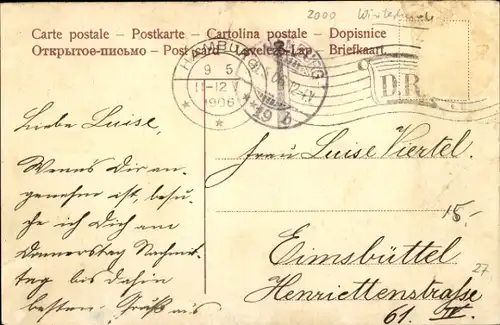 2000
Carte postale – Postkarte – Cartolina postale – Dopisnice
Открытое-письмо – Post card – Levelező-Lap – Briefkaart.
HAMBURG
9 5
11-12 V
1906
D.R.
Liebe Luise,
Wenn's Dir an-
genehm ist, besu-
che ich Dich am
Donnerstag Nachmit-
tag bis dahin
besten Gruß
Frau Luise Viertel.
15,-
Eimsbüttel
27
Henriettenstraße
61 IV.